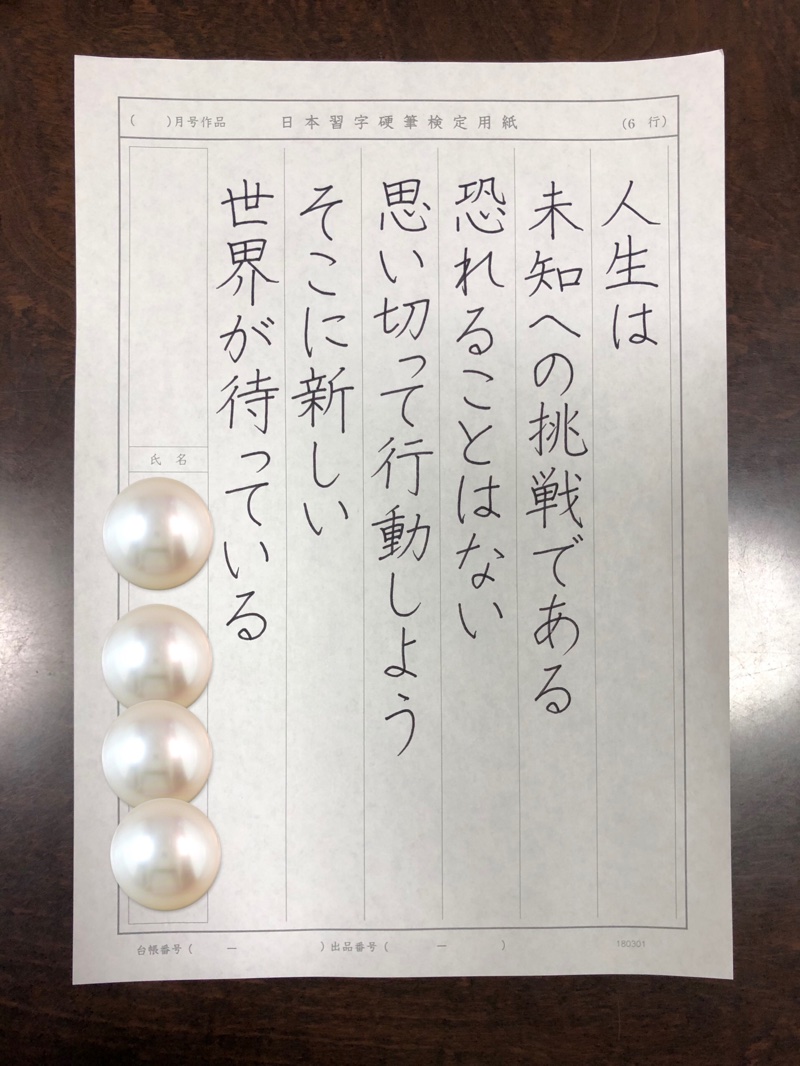 (　　)月号作品　日本習字硬筆検定用紙　(6 行)
人生は
未知への挑戦である
恐れることはない
思い切って行動しよう
そこに新しい
世界が待っている
氏名
台帳番号(　－　)出品番号(　－　)
180301